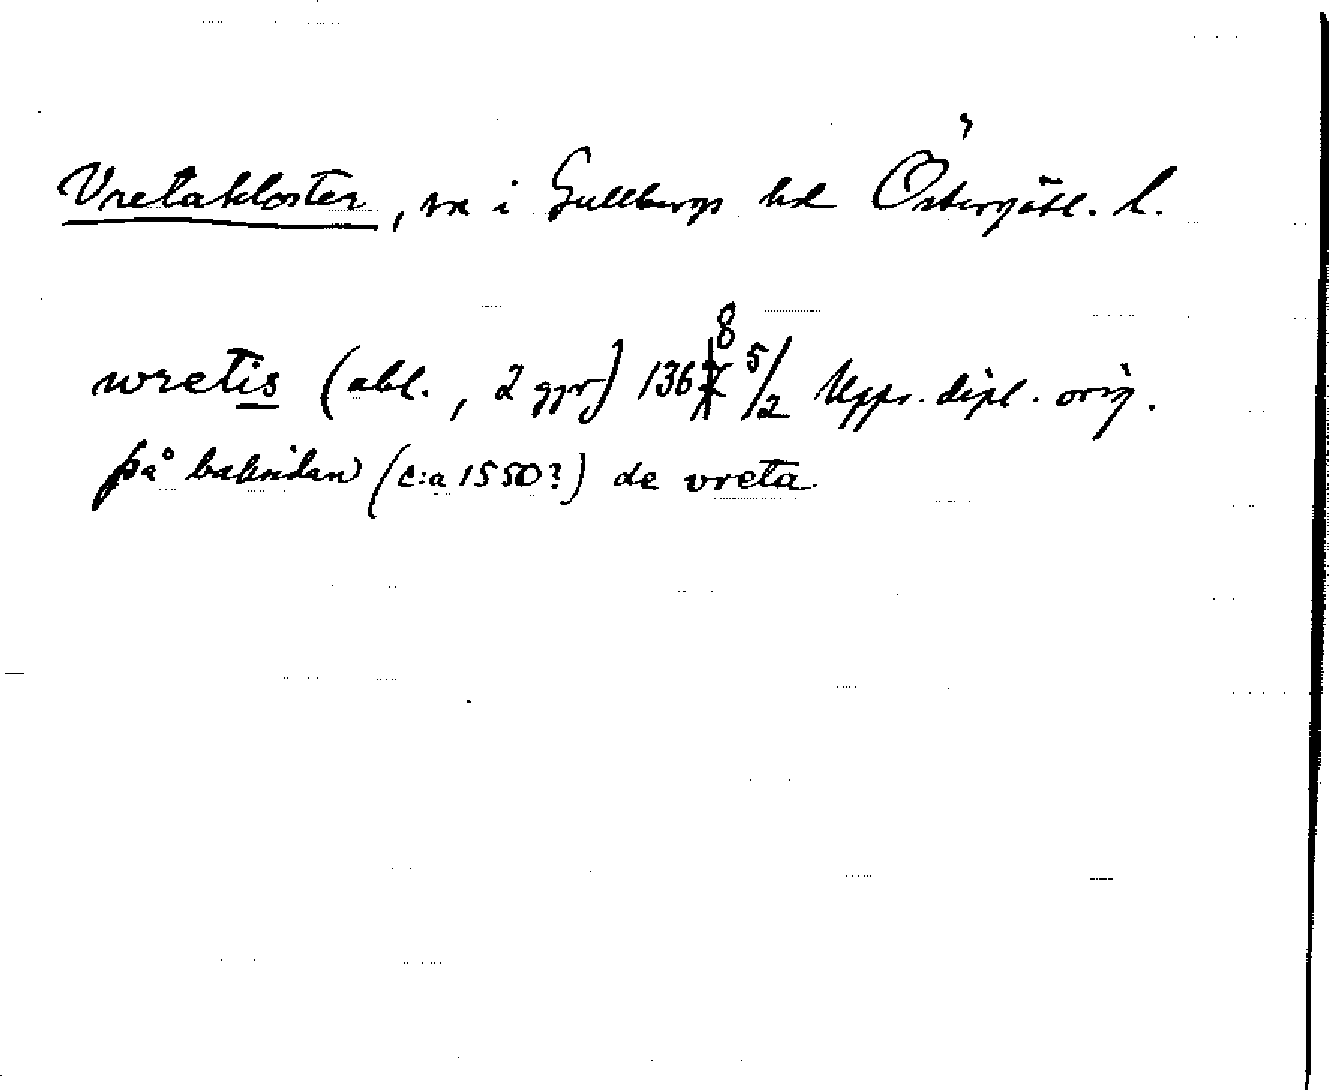 Vretakloster, sn i Gullbergs hd Östergötl. l.
wretis (abl., 2 ggr) 1368 5/2 Upps. dipl. orig.
på baksidan (c:a 1550?) de vreta.